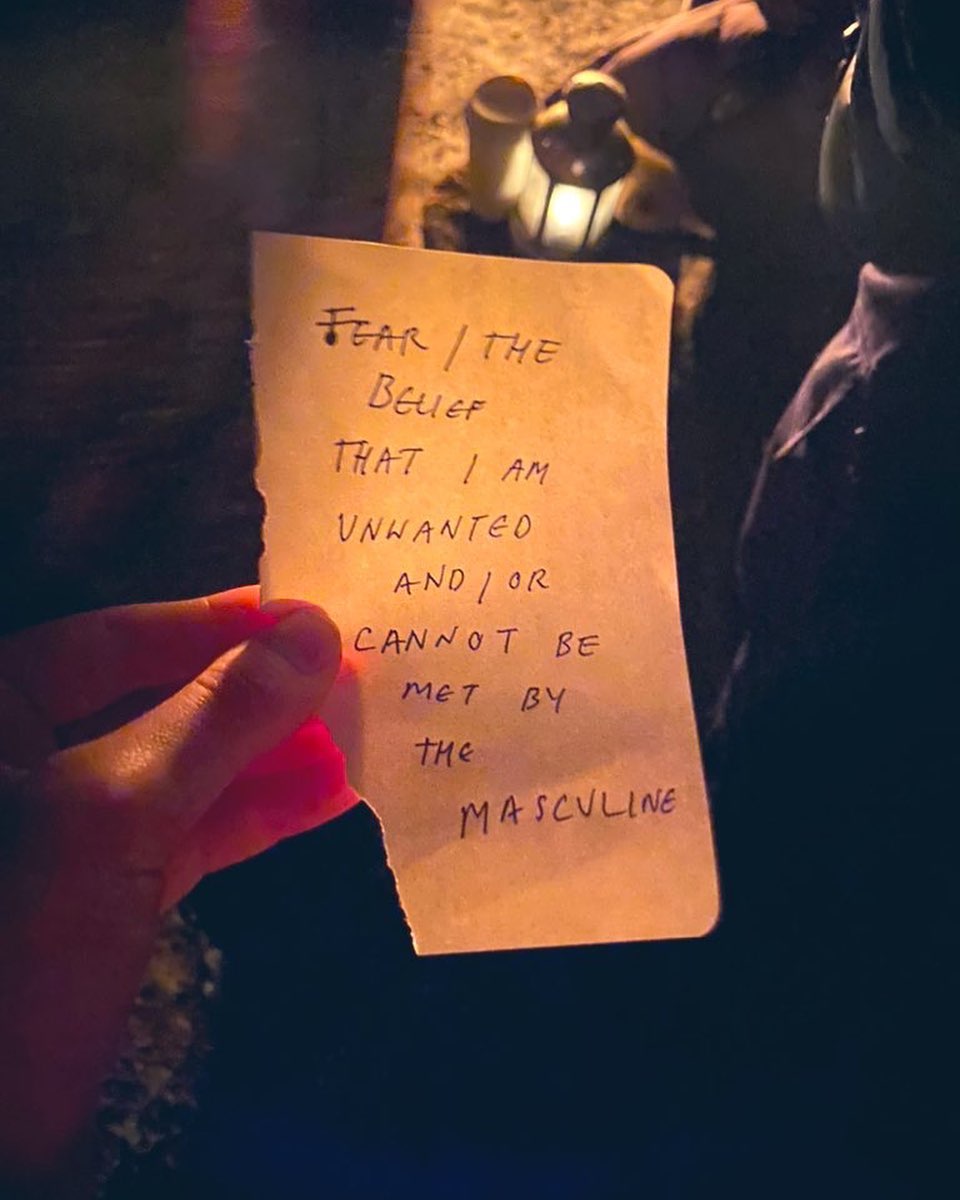 FEAR / THE
BELIEF
THAT I AM
UNWANTED
AND / OR
CANNOT BE
MET BY
THE
MASCULINE